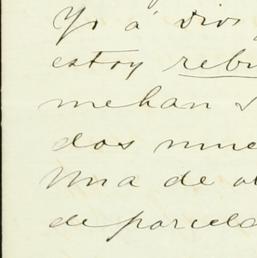 Yo á Dios
estoy rebu
mehan s
dos nue
Una de ol
de parcela